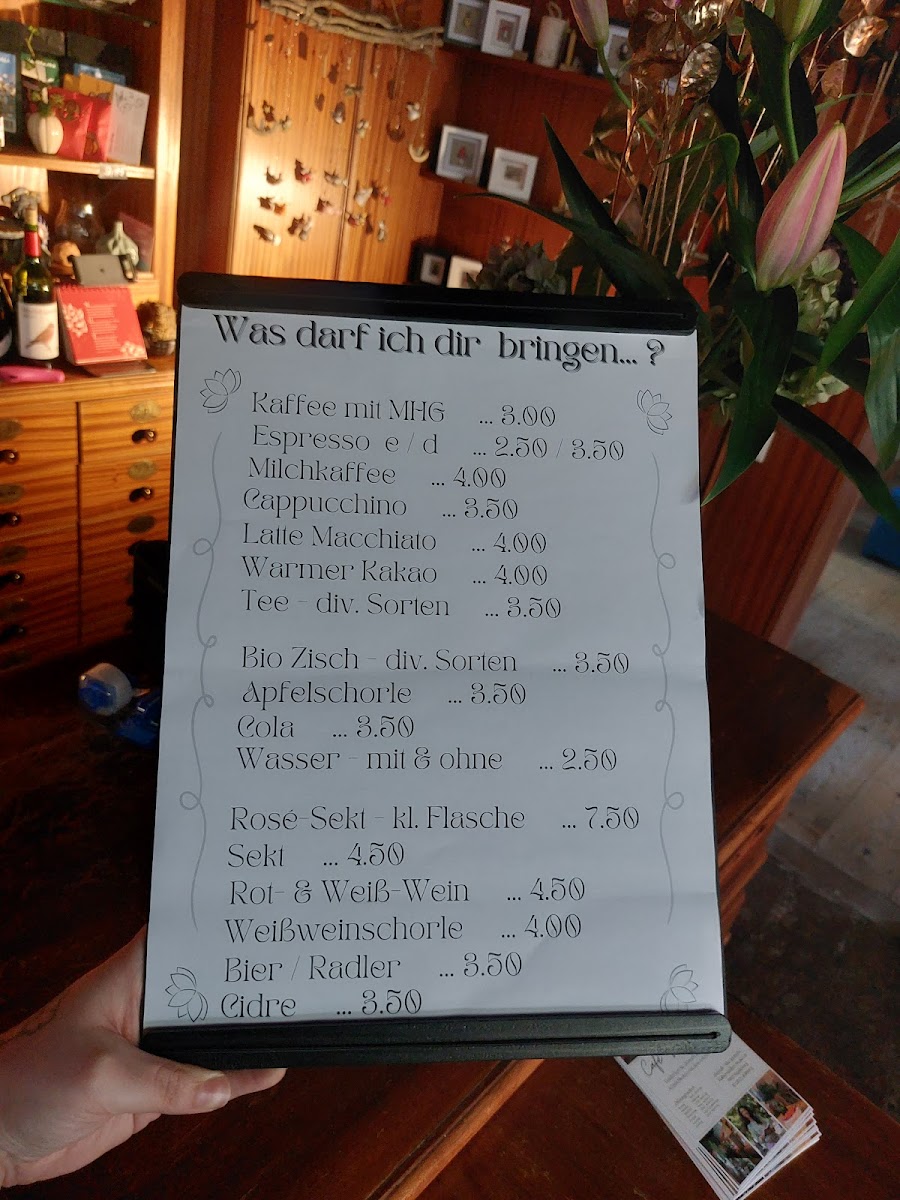 Was darf ich dir bringen... ?
Kaffee mit MHG ... 3.00
Espresso e / d ... 2.50 / 3.50
Milchkaffee ... 4.00
Cappucchino ... 3.50
Latte Macchiato ... 4.00
Warmer Kakao ... 4.00
Tee - div. Sorten ... 3.50
Bio Zisch - div. Sorten ... 3.50
Apfelschorle ... 3.50
Cola ... 3.50
Wasser - mit & ohne ... 2.50
Rosé-Sekt - kl. Flasche ... 7.50
Sekt ... 4.50
Rot- & Weiß-Wein ... 4.50
Weißweinschorle ... 4.00
Bier / Radler ... 3.50
Cidre ... 3.50